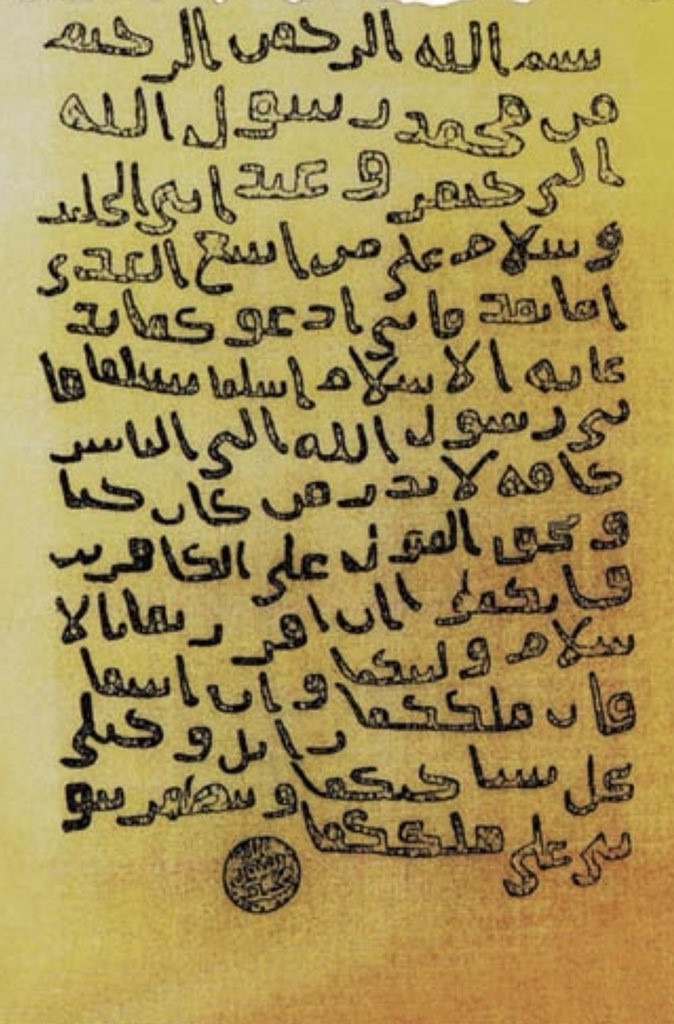 بسم الله الرحمن الرحيم
من محمد رسول الله
الى جيفر و عبد ابني الجلند
و سلام على من اتبع الهدى
اما بعد فاني ادعوكما بد
عايه الاسلام اسلما تسلما فا
ني رسول الله الى الناس
كافه لانذر من كان حيا
و يحق القول على الكافرين
فانكما ان اقررتما بالا
سلام وليتكما وان ابيتما
فان ملككما زايل و خيلي
تحل بساحتكما و تظهر نبو
تي على ملككما
الله
رسول
محمد